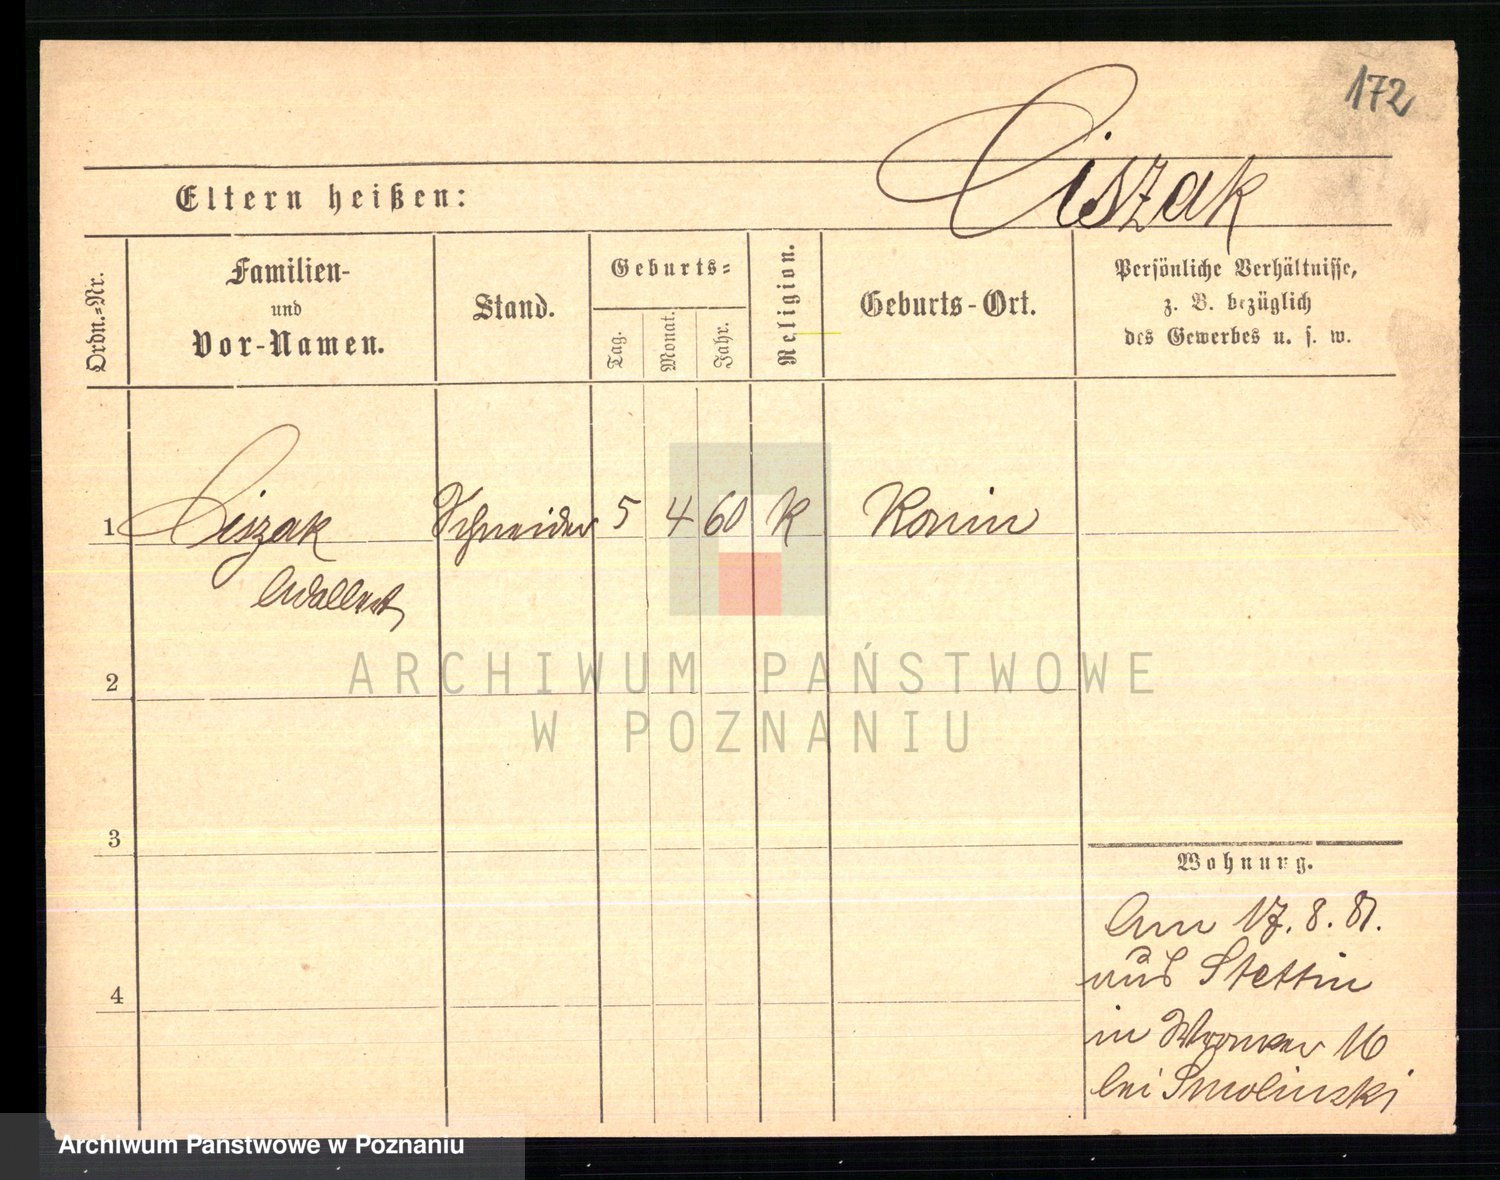 172
Ciszak
Eltern heißen:
Ordn.-Nr.
Familien-
und
Vor-Namen.
Stand.
Geburts-
Tag.
Monat.
Jahr.
Religion.
Geburts-Ort.
Persönliche Verhältnisse,
z. B. bezüglich
des Gewerbes u. s. w.
1 Ciszak Schneider 5 4 60 K Konin
Adalbert
2
3
4
Wohnung.
Am 17. 8. 81.
aus Stettin
in Wronker 16
bei Smolinski
ARCHIWUM PAŃSTWOWE
W POZNANIU
Archiwum Państwowe w Poznaniu